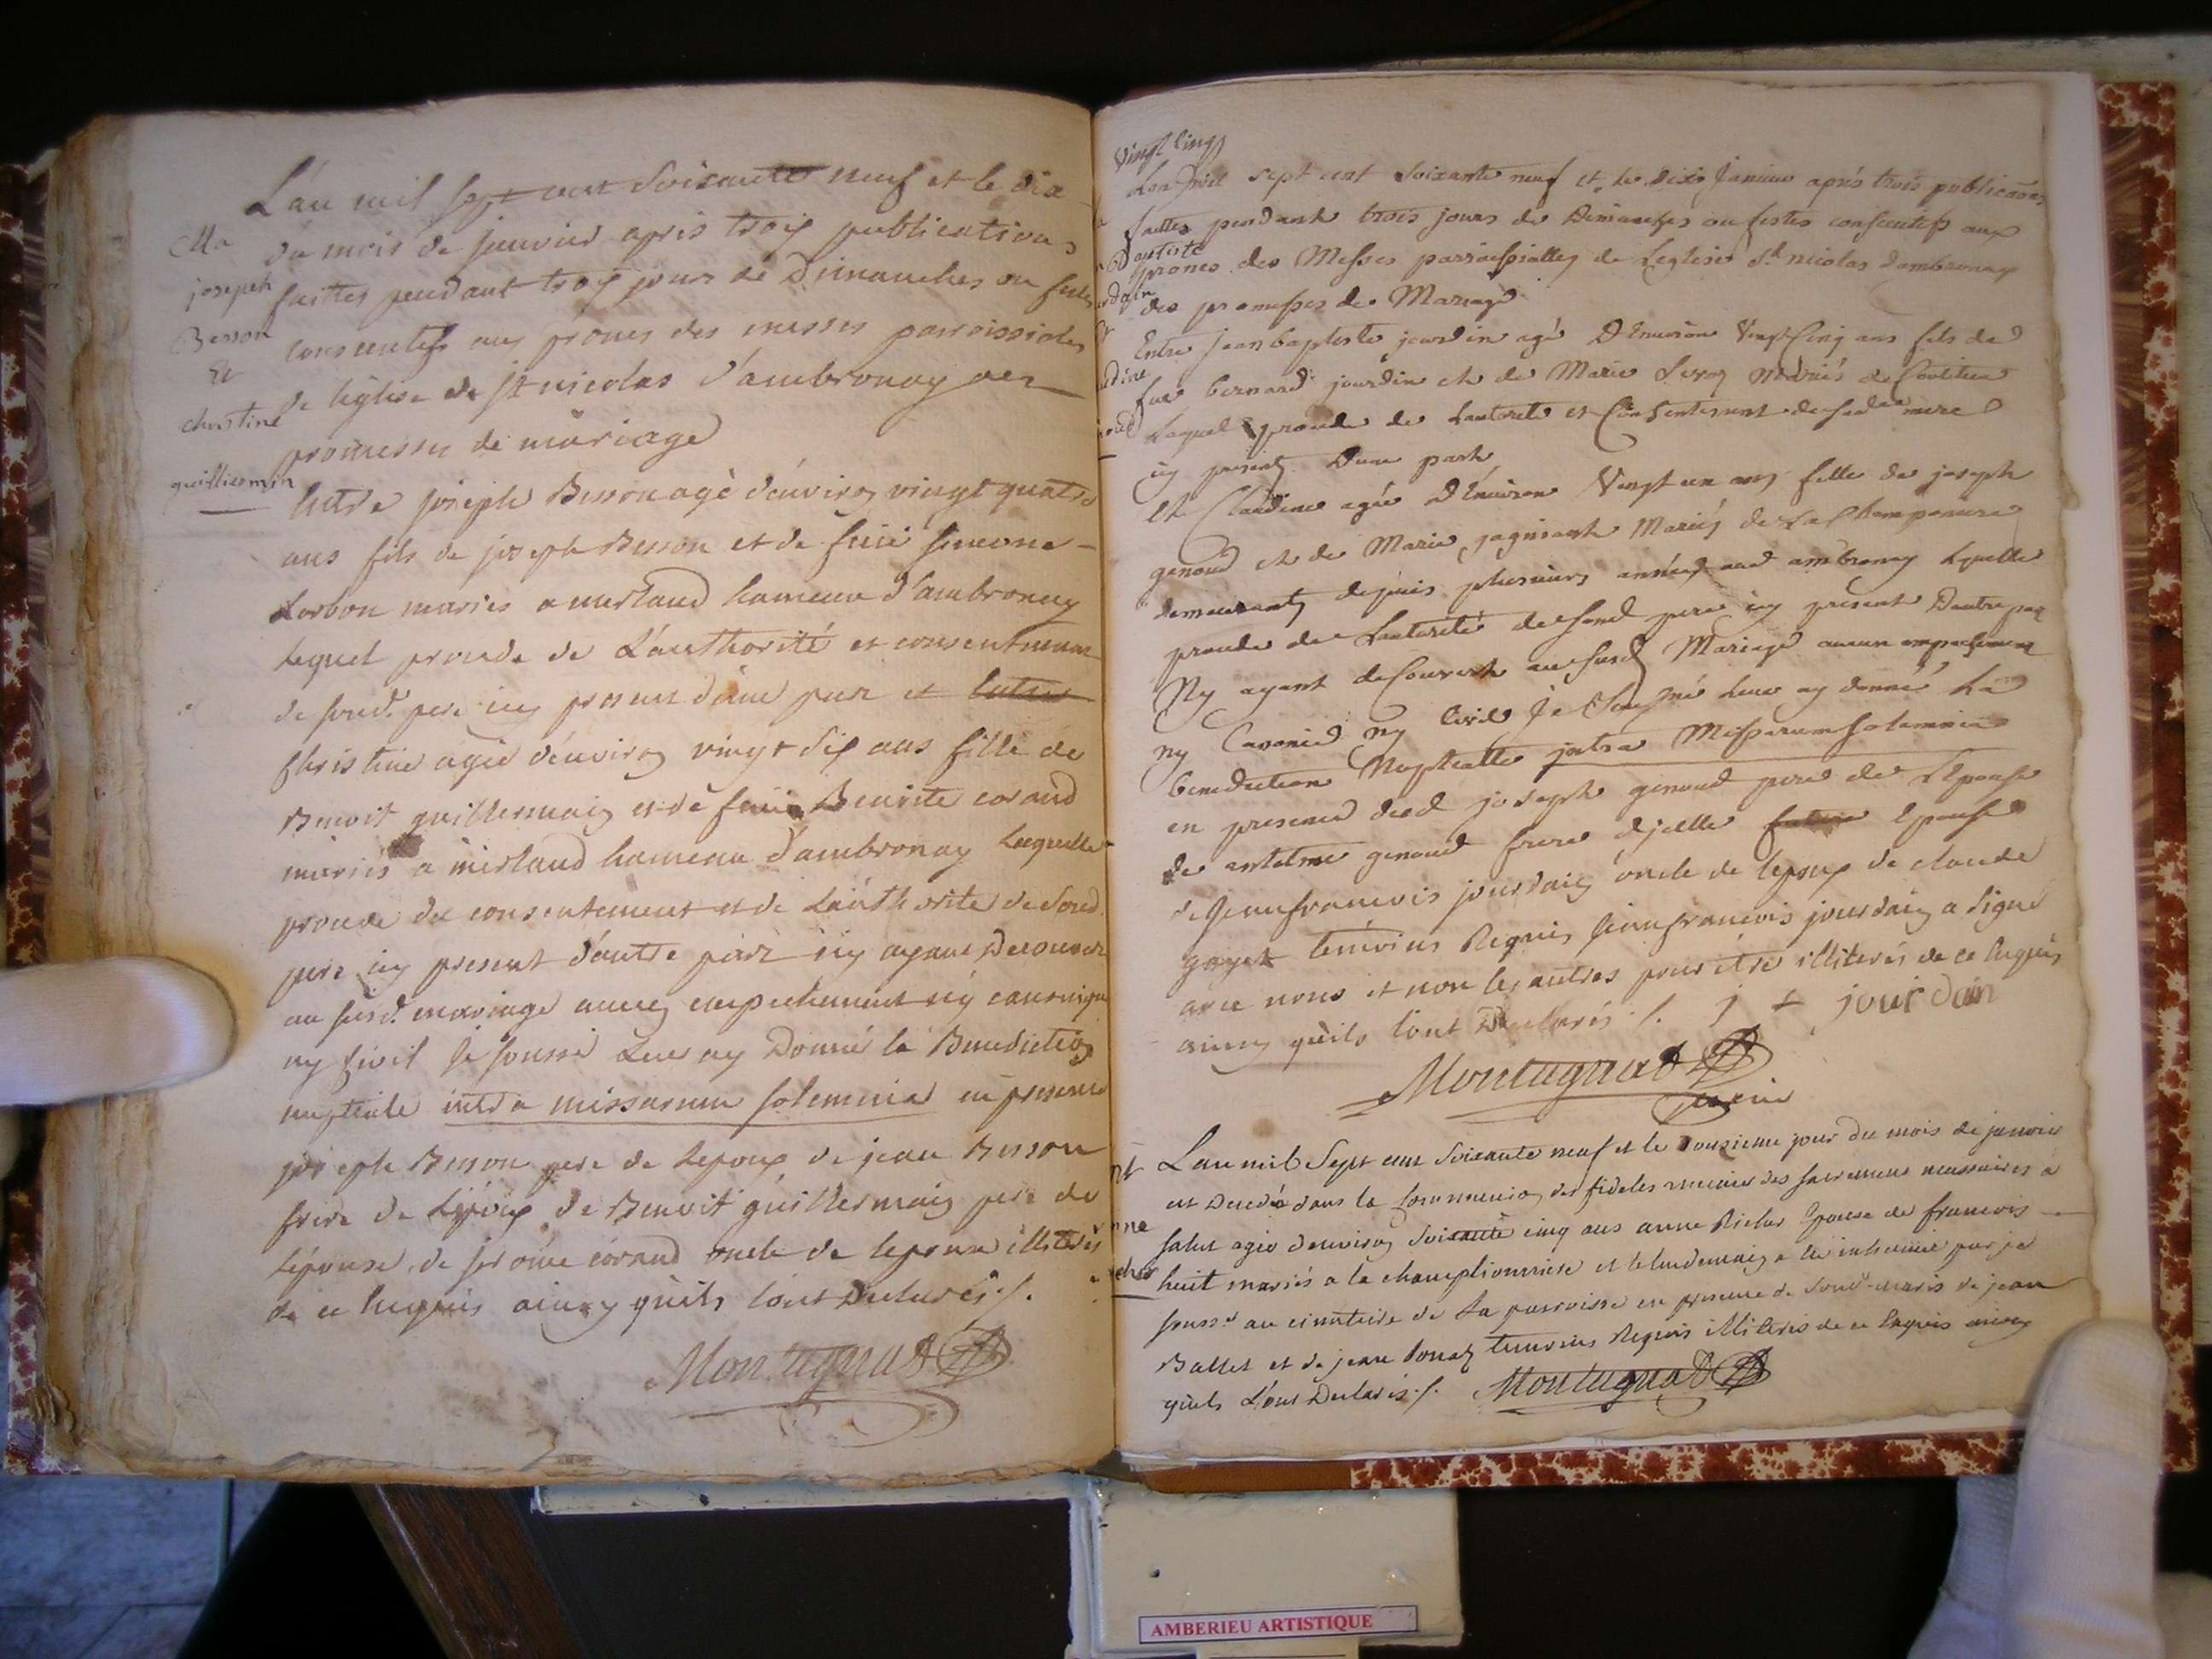 L'an mil sept cent soixante neuf et le dix
du mois de janvier apres trois publications
faittes pendant trois jours de Dimanches ou festes
consecutifs aux prônes des messes parroissiales
de l'église de st nicolas d'ambronay des
promesses de mariage
Ma
joseph
Besson
Et
christine
guilliermin
Entre joseph Besson agé d'environ vingt quatre
ans fils de joseph Besson et de feüe
Lorbon mariés a merland hameau d'ambronay
lequel procede de L'authorité et consentement
de soud. pere icy present d'une part et
Christine agée d'environ vingt six ans fille de
Benoit guillermain et de feüe Benoite corand
mariés a merland hameau d'ambronay Laquelle
procede du consentement et de L'authorite de soud.
pere icy present d'autre part n'y ayant Decouvert
au susd. mariage aucun empechement ny canonique
ny civil je soussé Leur ay Donné la Benediction
nuptiale intra missarum solemnia en presence
joseph Besson pere de lepoux de jean Besson
frere de L'époux de Benoit guillermain pere de
l'épouse de jerome corand oncle de lepouse illiterés
de ce Enquis ainsy qu'ils l'ont Declarés ./.
Montagnat
Vingt Cinq
Lan Mil sept cent soixante neuf et le dixe Janvier aprés trois publicaons
faittes pendant trois jours de Dimanches ou festes consecutifs aux
prones des Messes parroissialles de Leglise St nicolas dambronay
des promesses de Mariage
Baptiste
Entre jean baptiste jourdin agé D'Environ Vingt Cinq ans fils de
feu bernard jourdin et de Marie Mariés de
Lequel procede de Lautorité et Consentement de sade mere
icy present Dune part
Et Claudine agée D'Environ Vingt un ans fille de joseph
genoud et de Marie gagniant Mariés de La Championiere
demeurants depuis plusieurs années aud ambronay Lquelle
procede de Lautorité de soud pere icy present Dautre part
Ny ayant decouvert au susd Mariage aucun empechement
ny Canonic ny Civil Je Soussné leur ay donné La
benediction Nuptialle jntra Missarum solemnia
en presence dud joseph genoud pere de L'Epouse
de antelme genoud frere djcelle future Epouse
de Jeanfrancois jourdain oncle de lepoux de claude
goyet temoins Requis jeanfrancois jourdain a signé
avec nous et non les autres pour etre illiterés de ce Enquis
ainsy qu'ils l'ont Declarés ./. j f jourdain
Montagnat
L'an mil Sept cent soixante neuf et le douzieme jour du mois de janvier
est Decedé dans la Communion des fideles munie des sacremens necessaires a
salut agée d'environ soixante cinq ans anne Richer Epouse de francois
huit mariés a la championniere et le lendemain a eté inhumée par je
souss.é au cimetiere de La parroisse en presence de soud. maris de jean
Ballet et de jean temoins Requis illiterés de ce Enquis ainsy
qu'ils L'ont Declarés ./. Montagnat
AMBERIEU ARTISTIQUE